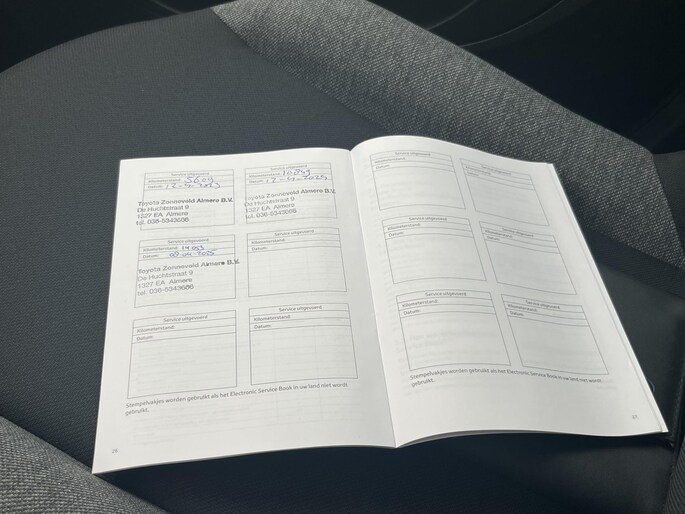 Service uitgevoerd
Kilometerstand:
Datum: 12-4-2023
Toyota Zonneveld Almere B.V.
De Huchtstraat 9
1327 EA Almere
tel. 036-5343686
Service uitgevoerd
Kilometerstand:
Datum: 12-4-2024
Toyota Zonneveld Almere B.V.
De Huchtstraat 9
1327 EA Almere
tel. 036-5343686
Service uitgevoerd
Kilometerstand: 14053
Datum: 09-04-2025
Toyota Zonneveld Almere B.V.
De Huchtstraat 9
1327 EA Almere
tel. 036-5343686
Service uitgevoerd
Kilometerstand:
Datum:
Service uitgevoerd
Kilometerstand:
Datum:
Service uitgevoerd
Kilometerstand:
Datum:
Stempelvakjes worden gebruikt als het Electronic Service Book in uw land niet wordt
gebruikt.
Service uitgevoerd
Kilometerstand:
Datum:
Service uitgevoerd
Kilometerstand:
Datum:
Service uitgevoerd
Kilometerstand:
Datum:
Service uitgevoerd
Kilometerstand:
Datum:
Service uitgevoerd
Kilometerstand:
Datum:
Service uitgevoerd
Kilometerstand:
Datum:
Stempelvakjes worden gebruikt als het Electronic Service Book in uw land niet wordt
gebruikt.